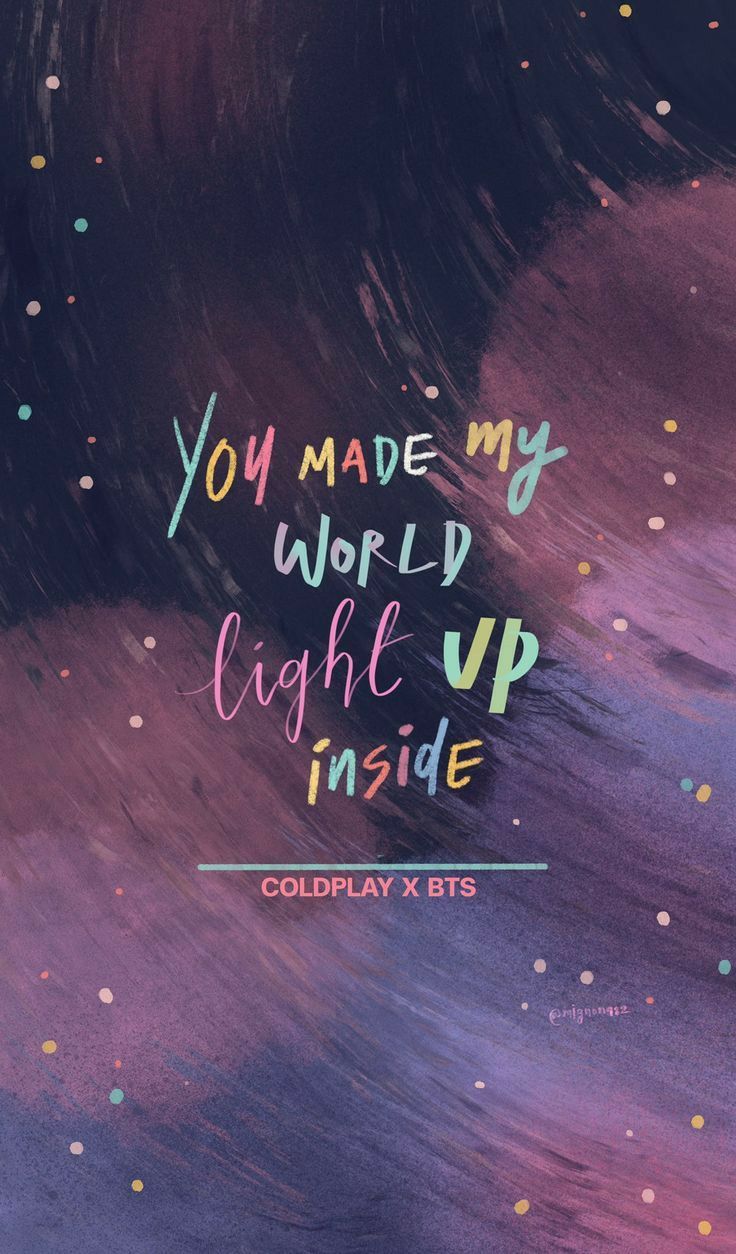 YOU MADE my
WORLD
light UP
insidE
COLDPLAY X BTS
@mignon982